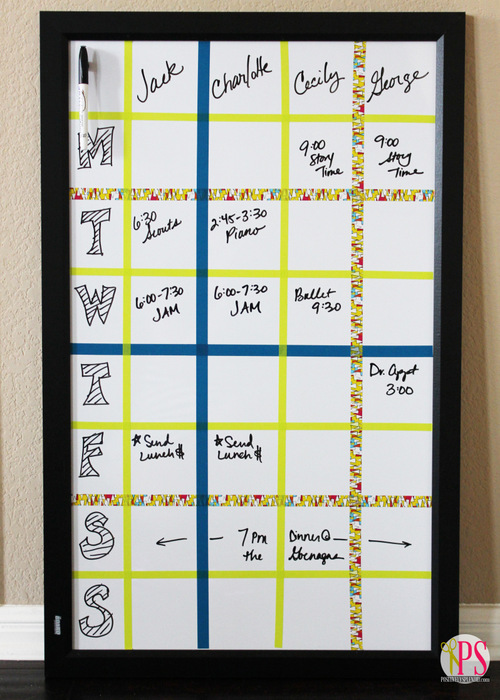 Jack
Charlotte
Cecily
George
M
9:00
Story
Time
9:00
Story
Time
T
6:30
Scouts
2:45-3:30
Piano
W
6:00-7:30
JAM
6:00-7:30
JAM
Ballet
9:30
T
Dr. Appt
3:00
F
*Send
Lunch $
*Send
Lunch $
S
7 pm Dinner @
the
S
PS
POSITIVELYSPLENDID.com